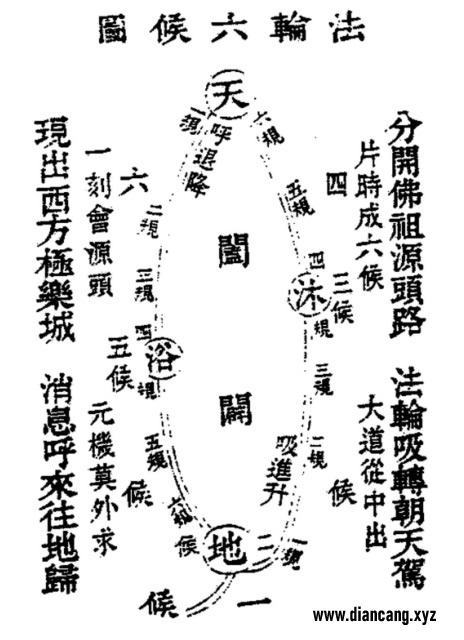 法輪六候圖
分開佛祖源頭路 法輪吸轉朝天駕
片時成六候 大道從中出
四
三候
候
天
六規
五規
四
沐
規
三規
二規
一規
吸進升
闔
闢
一規
呼退降
二規
三規
四
浴
規
五規
六規
地
二
六
五候
候
候
一
候
一刻會源頭 元機莫外求
現出西方極樂城 消息呼來往地歸
www.diancang.xyz